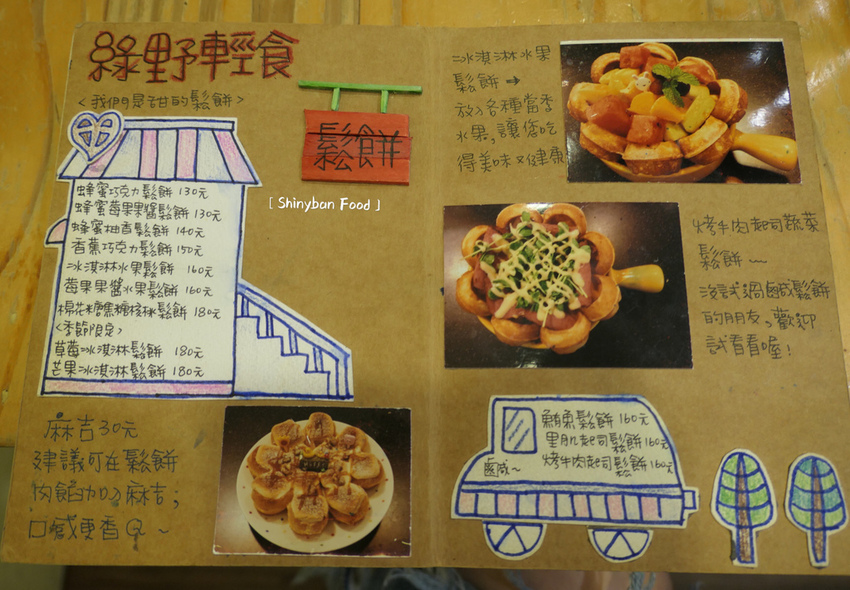 綠野輕食
<我們是甜的鬆餅>
鬆餅
蜂蜜巧克力鬆餅 130元
蜂蜜莓果果醬鬆餅 130元
蜂蜜柚香鬆餅 140元
香蕉巧克力鬆餅 150元
冰淇淋水果鬆餅 160元
莓果果醬水果鬆餅 160元
棉花糖黑糖核桃鬆餅 180元
<季節限定>
草莓冰淇淋鬆餅 180元
芒果冰淇淋鬆餅 180元
麻吉30元
建議可在鬆餅
內餡加入麻吉;
口感更香Q~
[ Shinyban Food 」
冰淇淋水果
鬆餅→
放入各種當季
水果,讓您吃
得美味又健康
烤牛肉起司蔬菜
鬆餅~
沒試過鹹鬆餅
的朋友,歡迎
試看看喔!
鹹~
鮪魚鬆餅 160元
里肌起司鬆餅 160元
烤牛肉起司鬆餅 160元